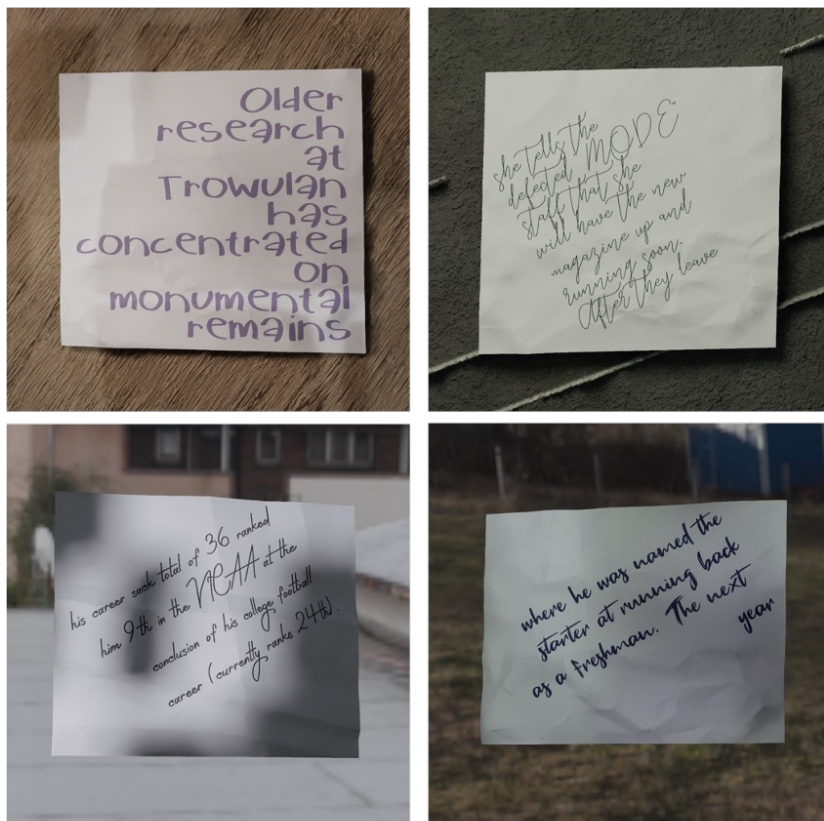 Older
research
at
Trowulan
has
concentrated
on
monumental
remains
she tells the
defected MODE
staff that she
will have the new
magazine up and
running soon.
After they leave
his career sack total of 36 ranked
him 9th in the NCAA at the
conclusion of his college football
career (currently ranks 24th).
where he was named the
starter at running back
as a freshman. The next
year